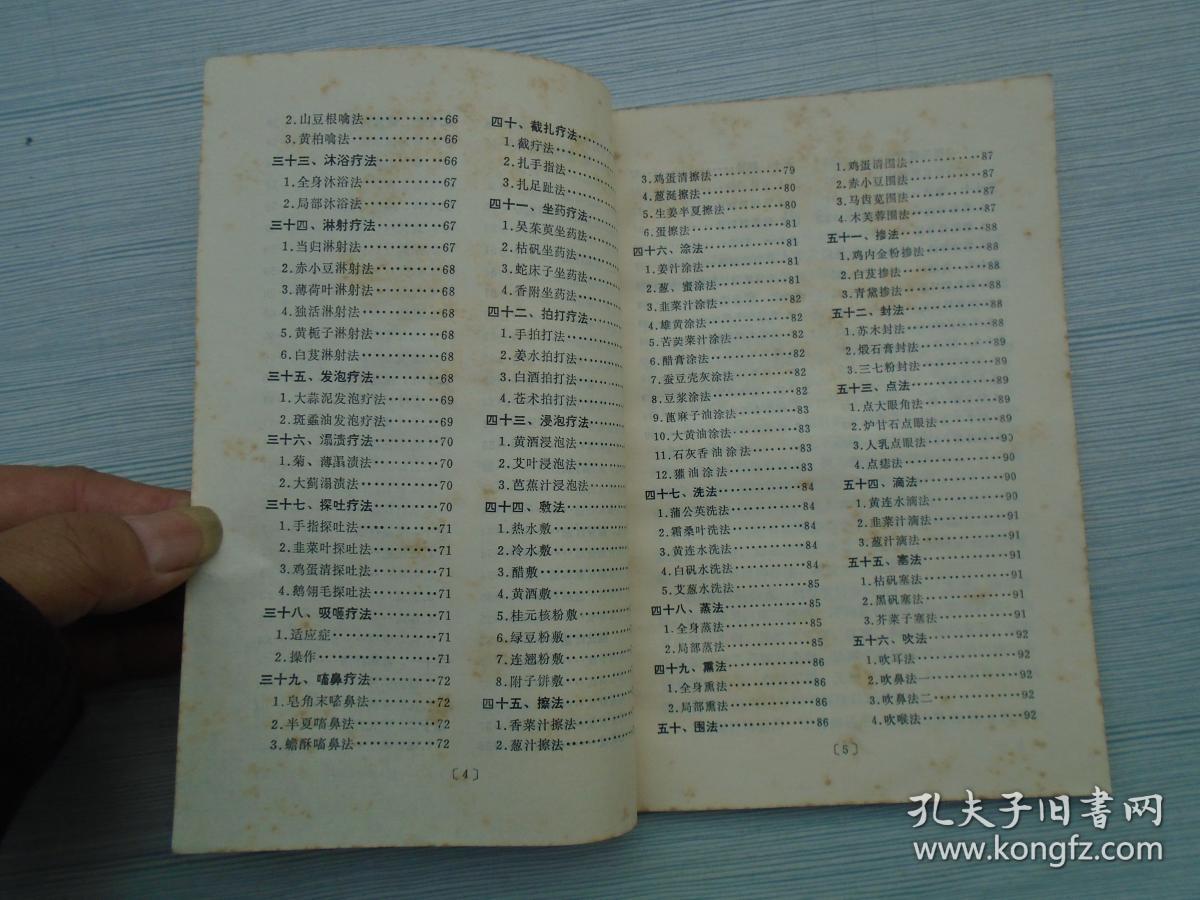 2.山豆根噙法············66
3.黄柏噙法············66
三十三、沐浴疗法·········66
1.全身沐浴法············67
2.局部沐浴法············67
三十四、淋射疗法·········67
1.当归淋射法············67
2.赤小豆淋射法·········68
3.薄荷叶淋射法·········68
4.独活淋射法············68
5.黄栀子淋射法·········68
6.白芨淋射法············68
三十五、发泡疗法·········68
1.大蒜泥发泡疗法······69
2.斑蝥油发泡疗法······69
三十六、溻渍疗法·········70
1.菊、薄溻渍法·········70
2.大蓟溻渍法············70
三十七、探吐疗法·········71
1.手指探吐法············71
2.韭菜叶探吐法·········71
3.鸡蛋清探吐法·········71
4.鹅翎毛探吐法·········71
三十八、吸咂疗法·········71
1.适应症···············71
2.操作·················71
三十九、㗜鼻疗法·········72
1.皂角末㗜鼻法·········72
2.半夏㗜鼻法············72
3.蟾酥㗜鼻法············72
四十、截扎疗法·········
1.截疗法············
2.扎手指法············
3.扎足趾法············
四十一、坐药疗法······
1.吴茱萸坐药法······
2.枯矾坐药法·········
3.蛇床子坐药法······
4.香附坐药法·········
四十二、拍打疗法······
1.手拍打法············
2.姜水拍打法·········
3.白酒拍打法·········
4.苍术拍打法·········
四十三、浸泡疗法······
1.黄酒浸泡法·········
2.艾叶浸泡法·········
3.芭蕉汁浸泡法······
四十四、敷法············
1.热水敷···············
2.冷水敷···············
3.醋敷·················
4.黄酒敷···············
5.桂元核粉敷·········
6.绿豆粉敷············
7.连翘粉敷············
8.附子饼敷············
四十五、擦法············
1.香菜汁擦法·········
2.葱汁擦法············
〔4〕
3.鸡蛋清擦法············79
4.葱涎擦法············80
5.生姜半夏擦法·········80
6.蛋擦法···············81
四十六、涂法············81
1.姜汁涂法············81
2.葱、蜜涂法············81
3.韭菜汁涂法············82
4.雄黄涂法············82
5.苦荬菜汁涂法·········82
6.醋膏涂法············82
7.蚕豆壳灰涂法·········82
8.豆浆涂法············82
9.蓖麻子油涂法·········83
10.大黄油涂法·········83
11.石灰香油涂法······83
12.獾油涂法············83
四十七、洗法············84
1.蒲公英洗法············84
2.霜桑叶洗法············84
3.黄连水洗法············84
4.白矾水洗法············84
5.艾葱水洗法············85
四十八、蒸法············85
1.全身蒸法············85
2.局部蒸法············85
四十九、熏法············86
1.全身熏法············86
2.局部熏法············86
五十、围法···············86
1.鸡蛋清围法············87
2.赤小豆围法············87
3.马齿苋围法············87
4.木芙蓉围法············87
五十一、掺法············88
1.鸡内金粉掺法·········88
2.白芨掺法············88
3.青黛掺法············88
五十二、封法············88
1.苏木封法············88
2.煅石膏封法············89
3.三七粉封法············89
五十三、点法············89
1.点大眼角法············89
2.炉甘石点眼法·········89
3.人乳点眼法············90
4.点痣法···············90
五十四、滴法············90
1.黄连水滴法············91
2.韭菜汁滴法············91
3.葱汁滴法············91
五十五、塞法············91
1.枯矾塞法············91
2.黑矾塞法············91
3.芥菜子塞法············91
五十六、吹法············92
1.吹耳法···············92
2.吹鼻法一············92
3.吹鼻法二············92
4.吹喉法···············92
〔5〕
孔夫子旧书网
www.kongfz.com